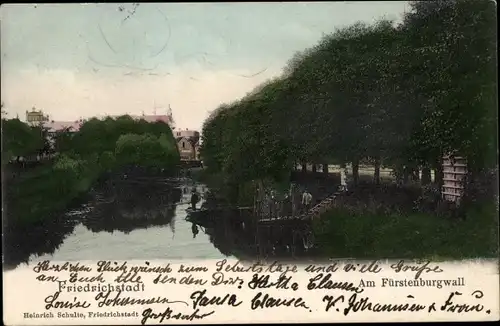 Friedrichstadt
Am Fürstenburgwall
Herzlichen Glückwunsch zum Geburtstage und viele Grüße
an Euch alle senden Dir Herta Clausen
Louise Johannsen Sansa Clausen V. Johannsen & Frau.
Heinrich Schulte, Friedrichstadt